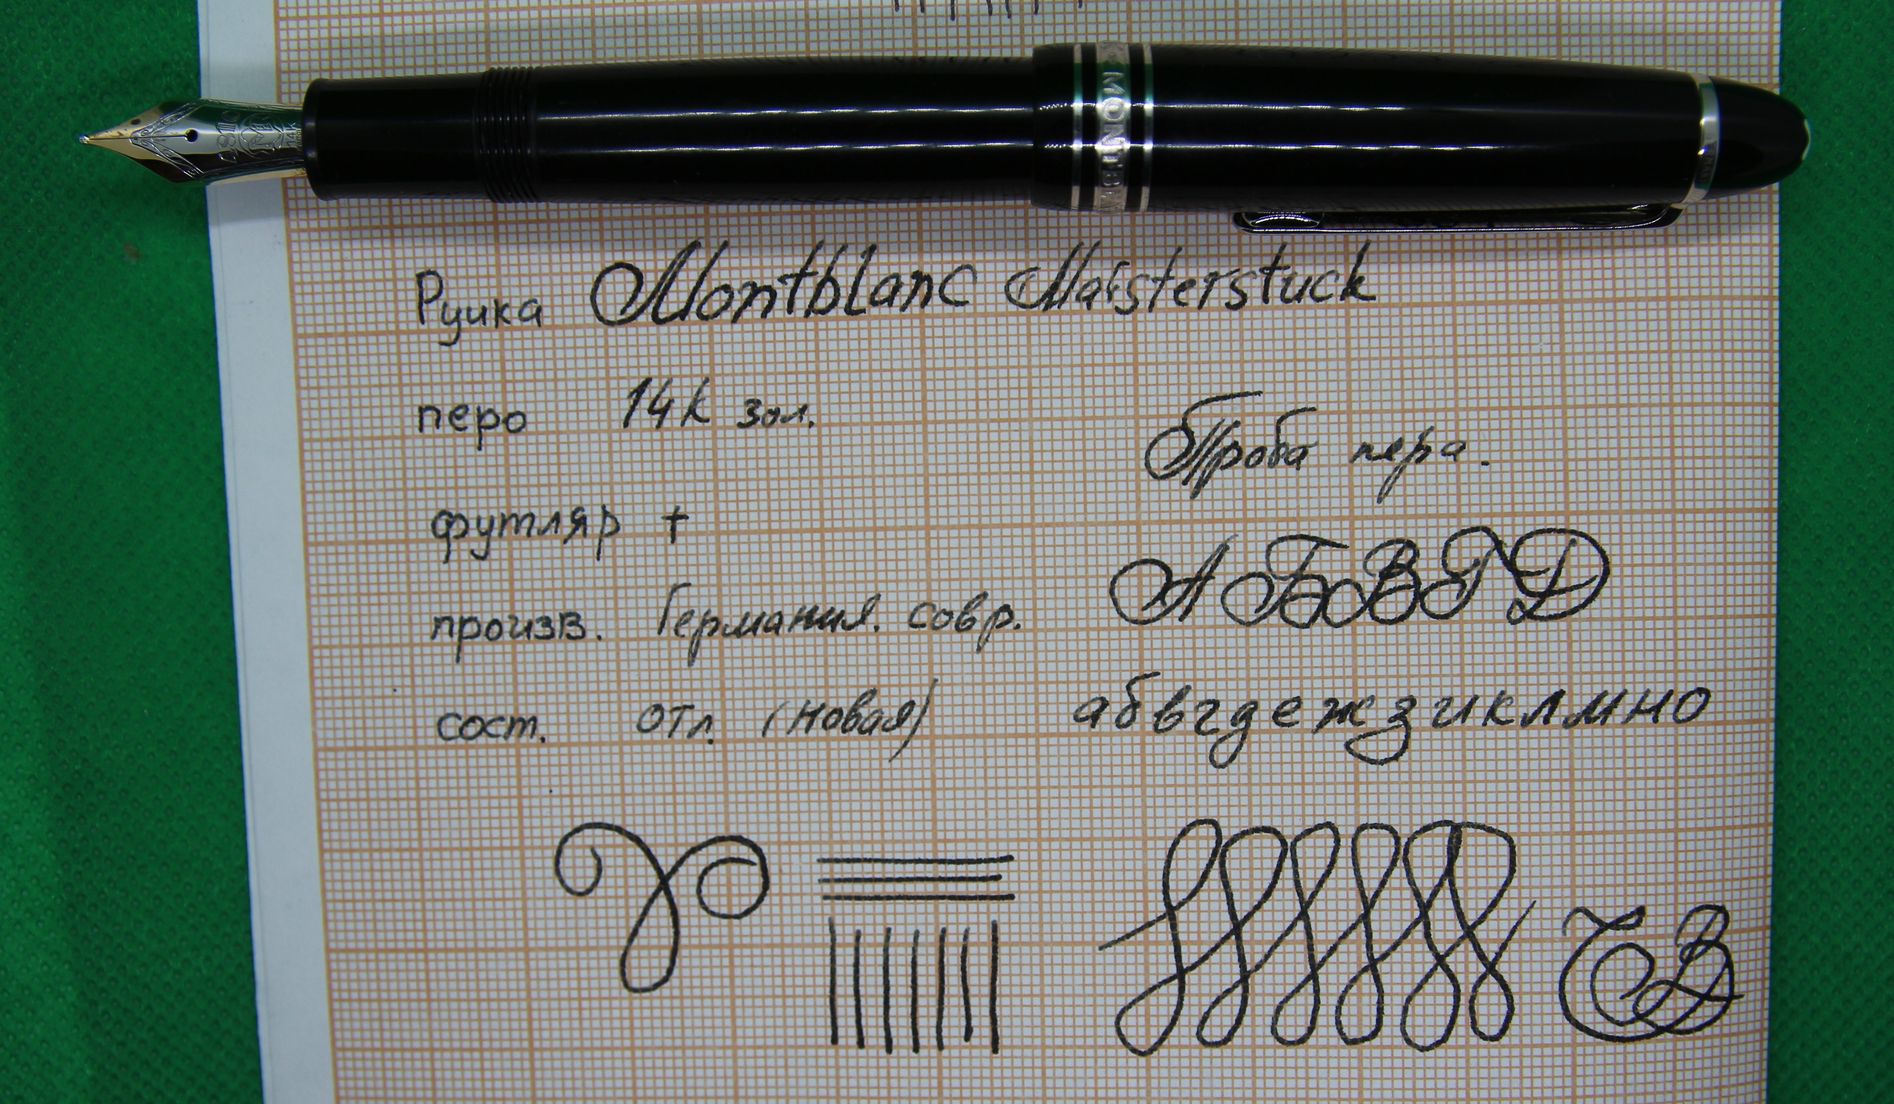 MONTBL
Ручка Montblanc Maisterstuck
перо 14к зол.
футляр +
произв. Германия. совр.
сост. отл. (новая)
Проба пера.
А Б В Г Д
абвгдежзиклмно